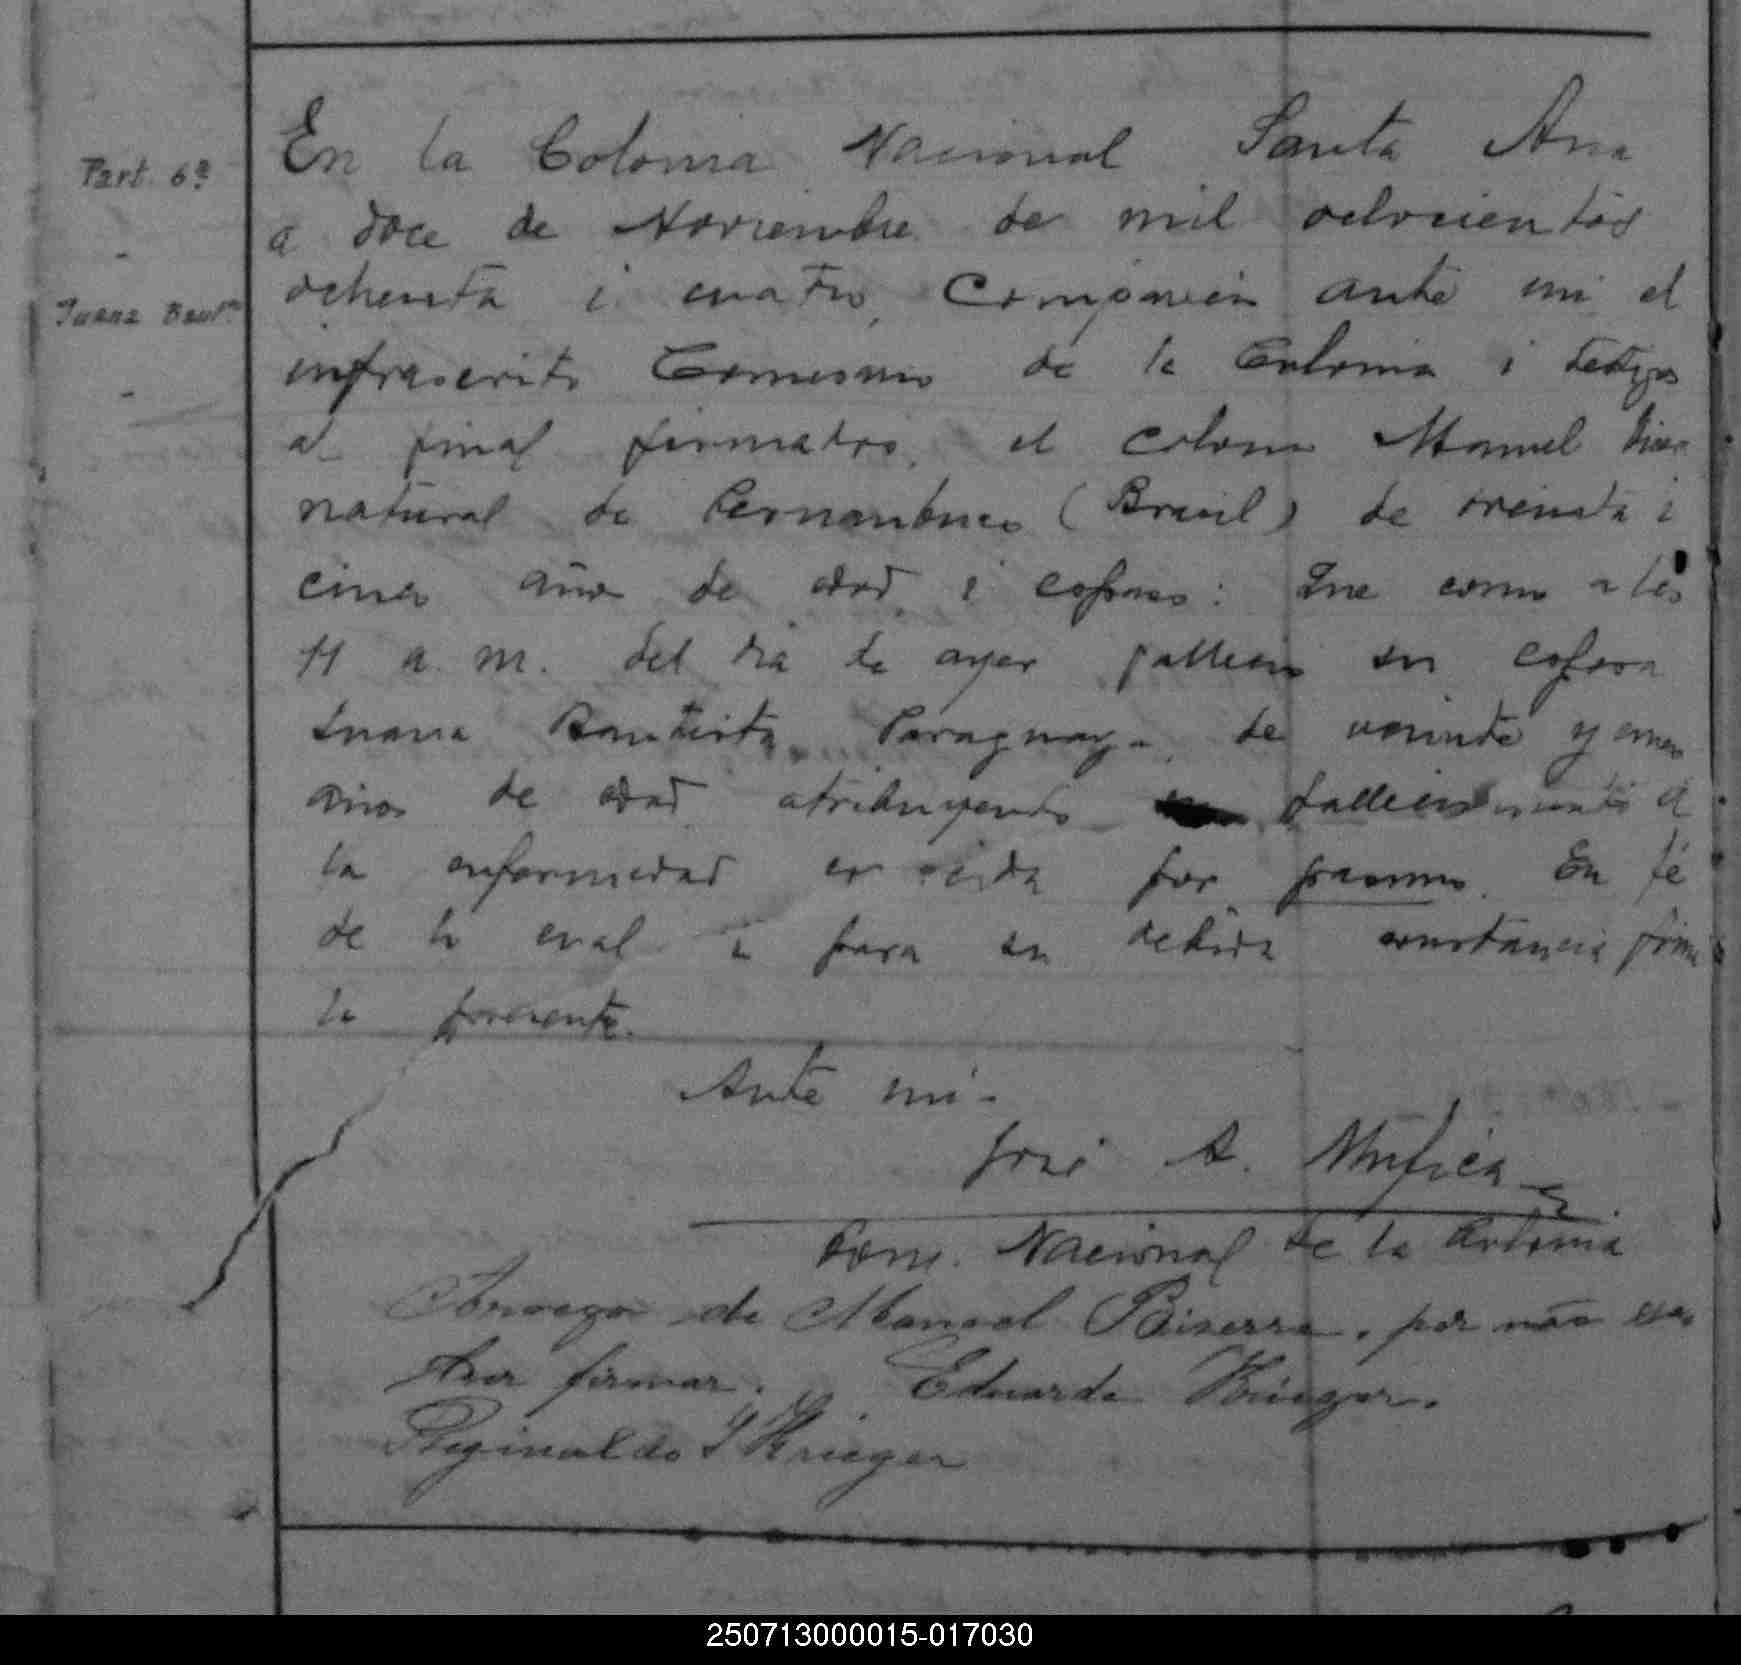 Part. 6ª
Juana Bautᵃ
En la Colonia Nacional Santa Ana
a doce de Noviembre de mil ochocientos
ochenta i cuatro, Compareció ante mi el
infrascrito Comisario de la Colonia i testigos
al final firmados, el colono Manuel
natural de Pernambuco (Brasil) de treinta i
cinco años de edad i expuso: Que como a las
11 a. m. del dia de ayer fallecio su esposa
Juana Bautista, Paraguaya, de veinte y cinco
años de edad atribuyendo fallecimiento á
la enfermedad conocida por pasmo. En fé
de lo cual i para su debida constancia firmo
la presente.
Ante mi.
José A. Mujica
Com. Nacional de la Colonia
Arrogo de Manoel Biserra, por não
firmar. Eduardo Krieger.
Reginaldo J Krieger
250713000015-017030